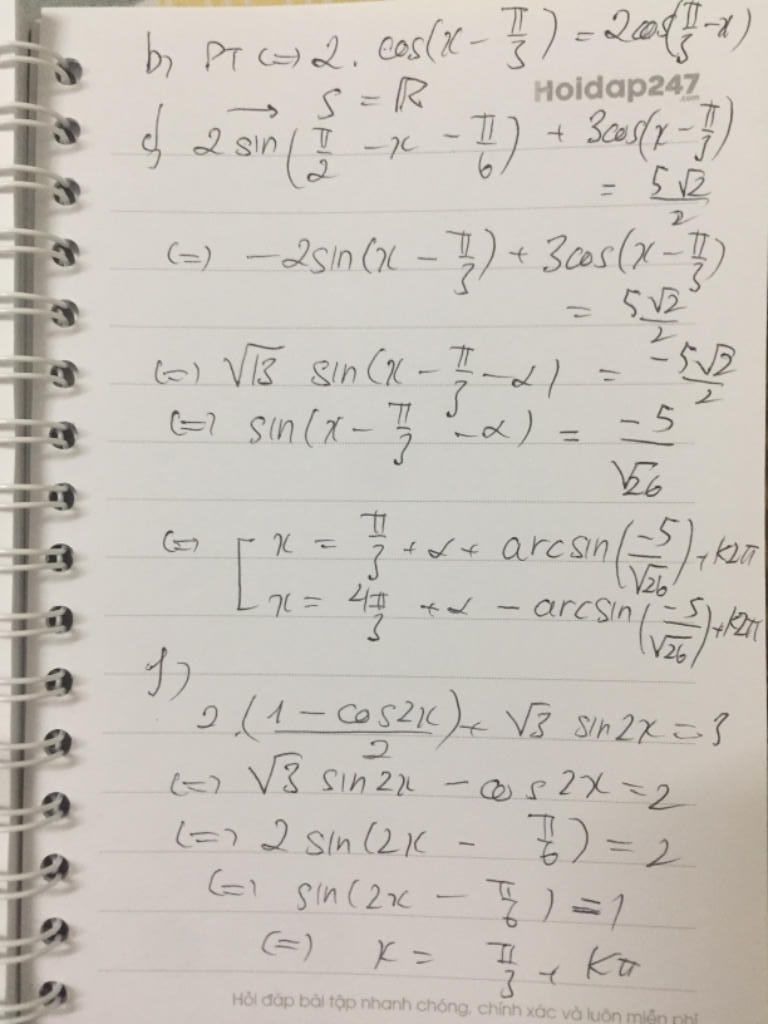 b, PT (=) 2. cos(x - π/3) = 2cos(π/3 - x)
→ S = ℝ
Hoidap247
.com
c) 2 sin(π/2 - x - π/6) + 3cos(x - π/3)
= 5√2/2
(=) -2sin(x - π/3) + 3cos(x - π/3)
= 5√2/2
(=) √13 sin(x - π/3 - α) = -5√2/2
(=) sin(x - π/3 - α) = -5/√26
(=) [ x = π/3 + α + arcsin(-5/√26) + k2π
x = 4π/3 + α - arcsin(-5/√26) + k2π
f)
2.(1 - cos2x)/2 + √3 sin2x = 3
(=) √3 sin2x - cos2x = 2
(=) 2 sin(2x - π/6) = 2
(=) sin(2x - π/6) = 1
(=) x = π/3 + kπ
Hỏi đáp bài tập nhanh chóng, chính xác và luôn miễn phí